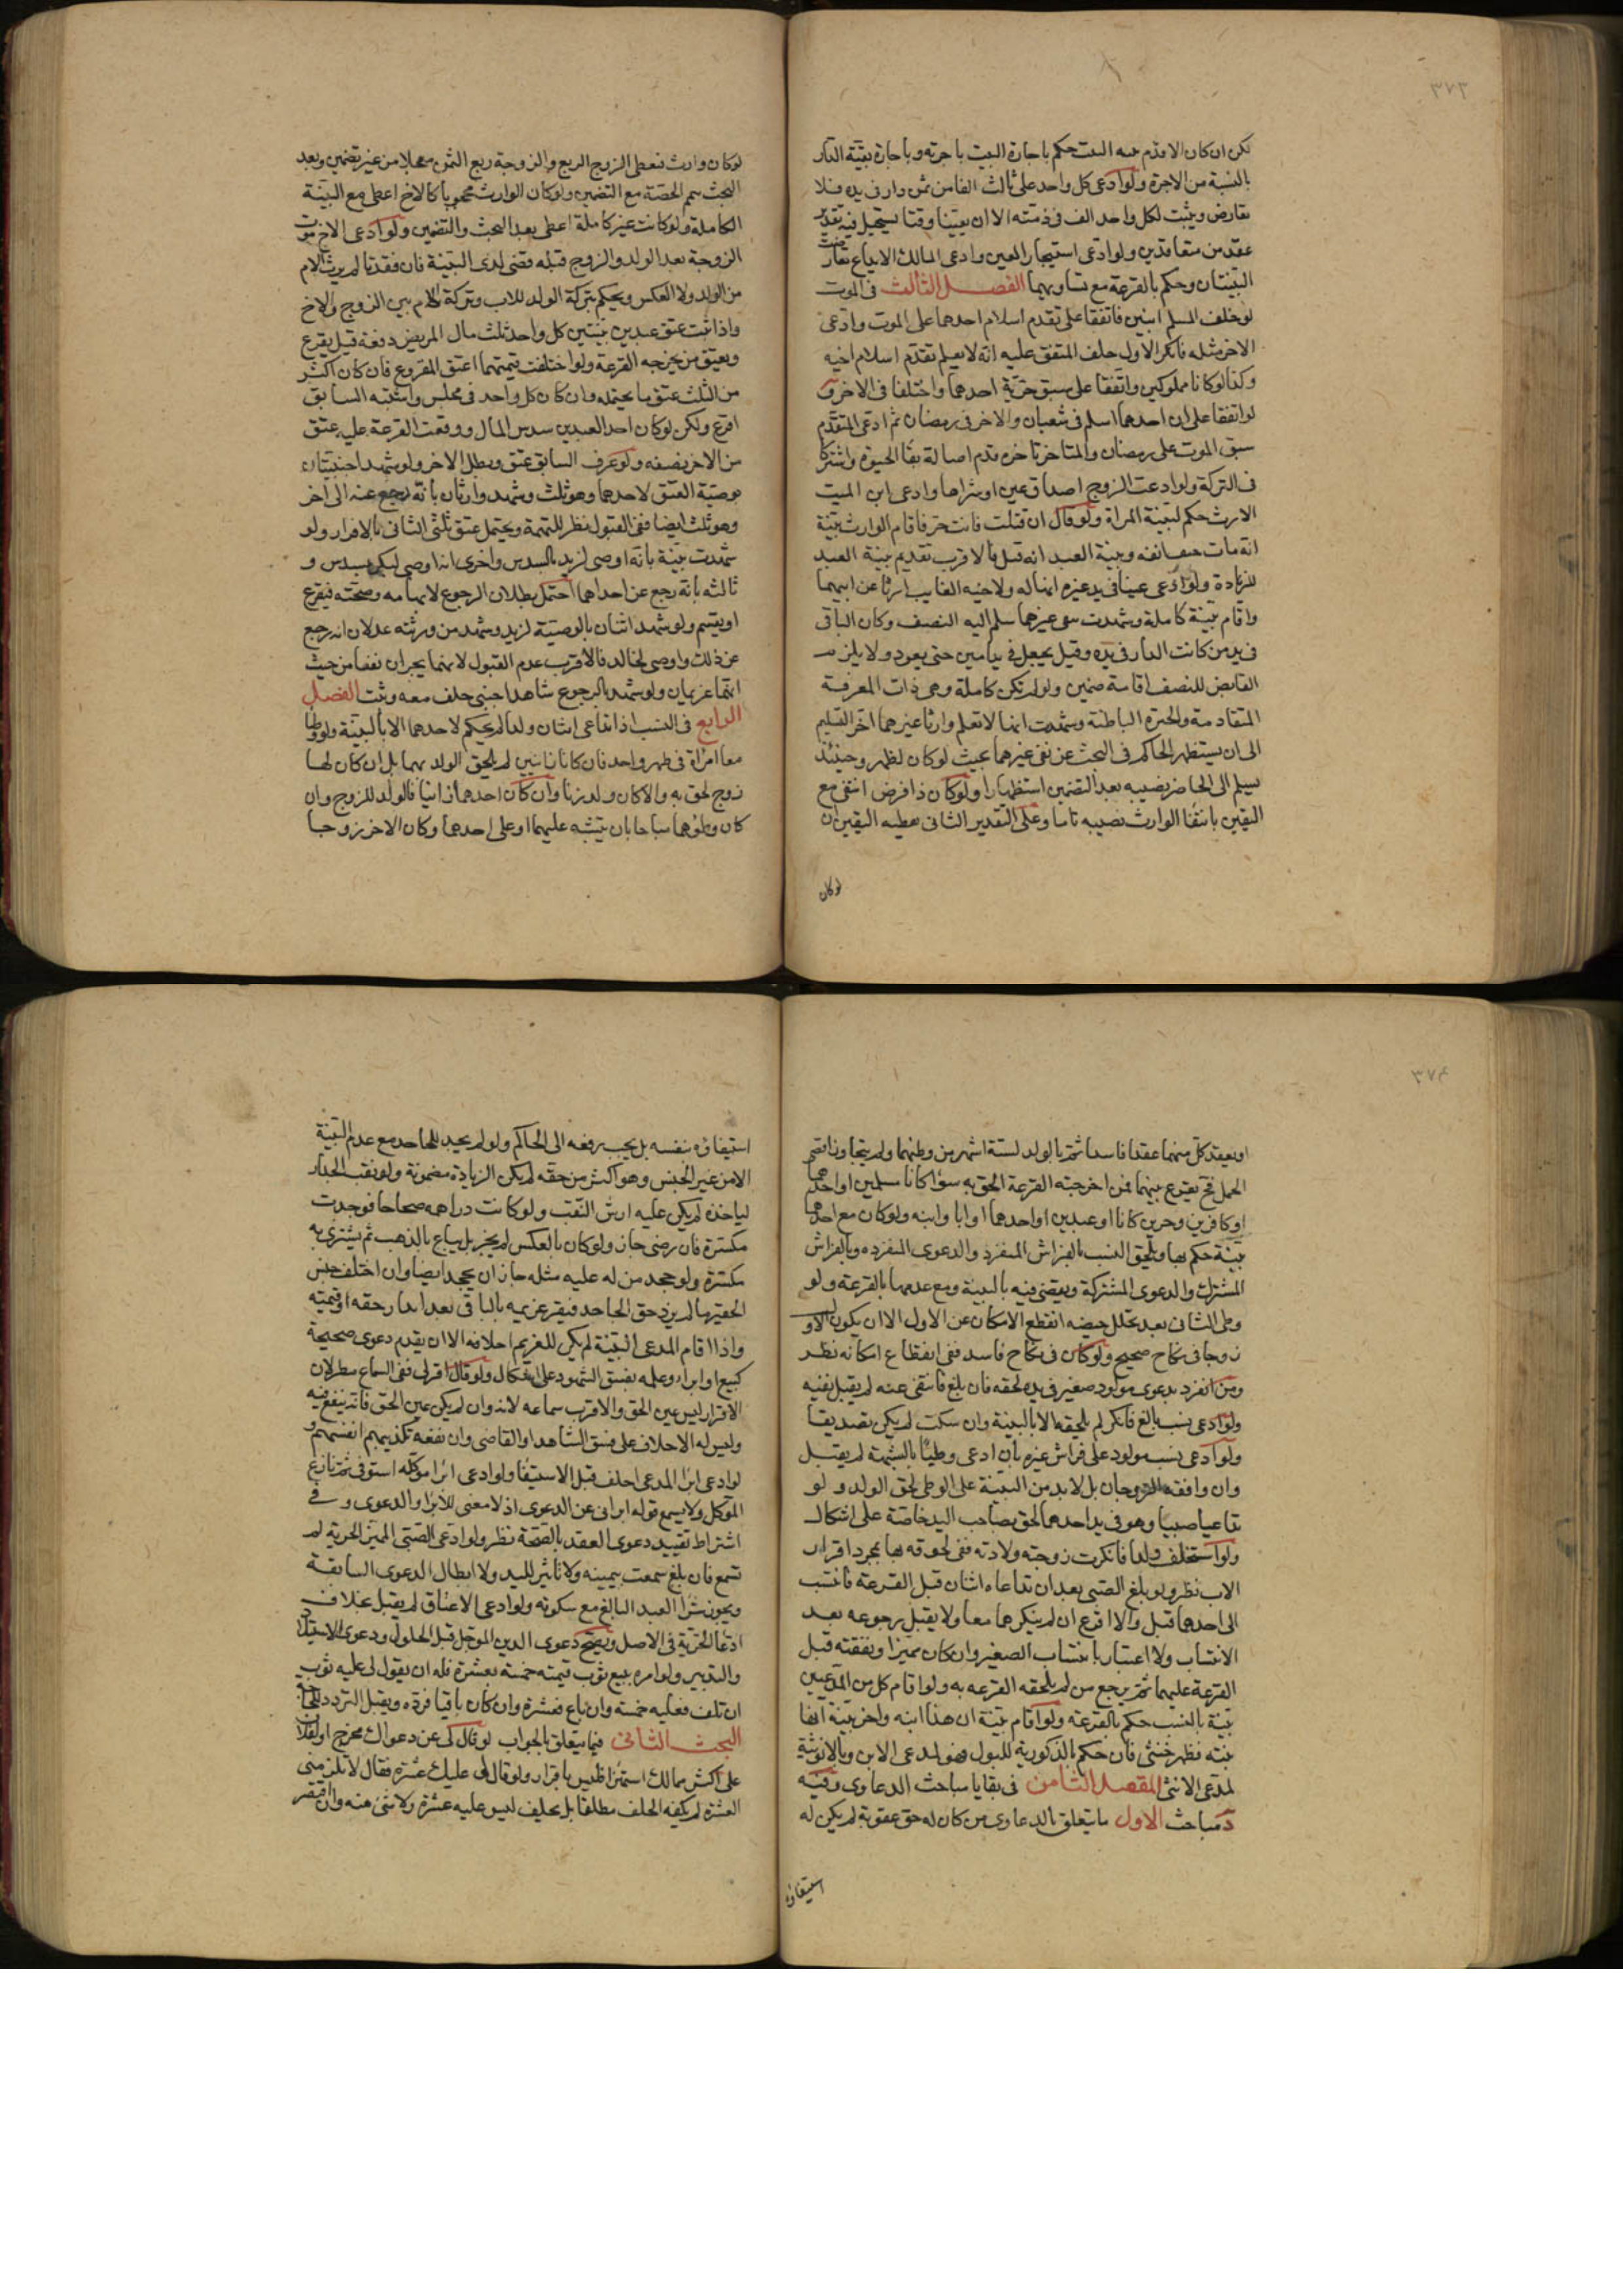 ٣٧٣
لكن ان كان الاقدم بينة البيت حكم باجارة البيت باجرته وباجارة بقية الدار
بالنسبة من الاجرة ولو ادعى كل واحد على ثالث الفا من ثمن دار فى يده فلا
تعارض ويثبت لكل واحد الف فى ذمته الا ان يعينا وقتا يستحيل فيه تقدير
عقد من متعاقدين ولو ادعى استيجار العين وادعى المالك الايداع تعارضت
البينتان وحكم بالقرعة مع تساويهما الفصل الثالث فى الموت
لو خلف المسلم ابنين فاتفقا على تقدم اسلام احدهما على الموت وادعى
الاخر مثله فانكر الاول حلف المتفق عليه انه لا يعلم تقدم اسلام اخيه
وكذا لو كانا مملوكين واتفقا على سبق حرية احدهما واختلفا فى الاخر و
لو اتفقا على ان احدهما اسلم فى شعبان والاخر فى رمضان ثم ادعى المتقدم
سبق الموت على رمضان والمتاخر تاخره قدم اصالة بقا الحيوة واشتركا
فى التركة ولو ادعت الزوجة اصداق عين او شراها وادعى ابن الميت
الارث حكم لبينة المراة ولو قال ان قتلت فانت حر فاقام الوارث بينة
انه مات حتف انفه وبينة العبد انه قتل فالاقرب تقديم بينة العبد
للزيادة ولو ادعى عينا فى يد غيره انها له ولاخيه الغايب ارثا عن ابيهما
واقام بينة كاملة وشهدت بنفى غيرهما سلم اليه النصف وكان الباقى
فى يد من كانت الدار فى يده وقيل يجعل فى يد امين حتى يعود ولا يلزم
القابض للنصف اقامة ضمين ولو لم تكن كاملة وهى ذات المعرفة
المتقادمة والخبرة الباطنة وشهدت انها لا تعلم وارثا غيرهما اخر التسليم
الى ان يستظهر الحاكم فى البحث عن نفى غيرهما بحيث لو كان لظهر وحينئذ
يسلم الى الحاضر نصيبه بعد التضمين استظهارا ولو كان ذا فرض انتفى مع
اليقين بانتفا الوارث نصيبه تاما وعلى التقدير الثانى يعطيه اليقين ان
لو كان
لو كان وارث فيعطى الزوج الربع والزوجة ربع الثمن معجلا من غير تضمين وبعد
البحث يتم الحصة مع التضمين ولو كان الوارث محجوبا كالاخ اعطى مع البينة
الكاملة ولو كانت غير كاملة اعطى بعد البحث والتضمين ولو ادعى الاخ موت
الزوجة بعد الولد والزوج قبله قضى لذى البينة فان فقدتا لم يرث الام
من الولد ولا العكس ويحكم بتركة الولد للاب وتركة الام بين الزوج والاخ
واذا ثبت عتق عبدين ببينتين كل واحد ثلث مال المريض دفعة قيل يقرع
ويعتق من يخرجه القرعة ولو اختلفت قيمتهما اعتق المقروع فان كان اكثر
من الثلث عتق ما يحتمله وان كان كل واحد فى مجلس واشتبه السابق
اقرع ولكن لو كان احد العبدين سدس المال ووقعت القرعة عليه عتق
من الاخر نصفه ولو عرف السابق عتق وبطل الاخر ولو شهد اجنبيتان
بوصية العتق لاحدهما وهو ثلث وشهد وارثان بانه رجع عنه الى اخر
وهو ثلث ايضا ففى القبول نظر للتهمة ويحتمل عتق ثلثى الثانى بالاقرار ولو
شهدت بينة بانه اوصى لزيد بالسدس واخرى انه اوصى لبكر بسدس و
ثالثه بانه رجع عن احداهما احتمل بطلان الرجوع لابهامه وصحته فيقرع
او يقسم ولو شهد اثنان بالوصية لزيد وشهد من ورثته عدلان انه رجع
عن ذلك واوصى لخالد فالاقرب عدم القبول لانهما يجران نفعا من حيث
انهما غريمان ولو شهد بالرجوع شاهد اجنبى حلف معه وثبت الفصل
الرابع فى النسب اذا تداعى اثنان ولدا لم يحكم لاحدهما الا بالبينة ولو وطا
معا امراة فى طهر واحد فان كانا زانيين لم يلحق الولد بهما بل ان كان لها
زوج لحق به والا كان ولد زنا وان كان احدهما زانيا فالولد للزوج وان
كان وطؤهما مباحا بان يشتبه عليهما او على احدهما وكان الاخر زوجا
٣٧٤
او يعقد كل منهما عقدا فاسدا ثم تاتى بالولد لستة اشهر من وطئهما ولم يتجاوز اقصى
الحمل فح يقرع بينهما فمن اخرجته القرعة الحق به سوا كانا مسلمين او احدهما
او كافرين وحرين كانا او عبدين او احدهما او ابا وابنه ولو كان مع احدهما
بينة حكم بها ويلحق النسب بالفراش المنفرد والدعوى المنفرده وبالفراش
المشترك والدعوى المشتركة ويقضى فيه بالبينة ومع عدمها بالقرعة ولو
وطى الثانى بعد تخلل حيضه انقطع الامكان عن الاول الا ان يكون الاول
زوجا فى نكاح صحيح ولو كان فى نكاح فاسد ففى انقطاع امكانه نظر
ومن انفرد بدعوى مولود صغير فى يده لحقه فان بلغ فانتفى عنه لم يقبل نفيه
ولو ادعى نسب بالغ فانكر لم يلحقه الا بالبينة وان سكت لم يكن تصديقا
ولو ادعى نسب مولود على فراش غيره بان ادعى وطيا بالشبهة لم يقبل
وان وافقه الزوجان بل لا بد من البينة على الوطى لحق الولد ولو
تداعيا صبيا وهو فى يد احدهما لحق بصاحب اليد خاصة على اشكال
ولو استخلف ولدا فانكرت زوجته ولادته ففى لحوقه بها بمجرد اقرار
الاب نظر ولو بلغ الصبى بعد ان تداعاه اثنان قبل القرعة فانتسب
الى احدهما قبل والا اقرع ان لم ينكرهما معا ولا يقبل رجوعه بعد
الانتساب ولا اعتبار بانتساب الصغير وان كان مميزا ونفقته قبل
القرعة عليهما ثم يرجع من لم يلحقه القرعه به ولو اقام كل من المدعيين
بينة بالنسب حكم بالقرعة ولو اقام بينة ان هذا ابنه واخر بينة انها
بنته فظهر خنثى فان حكم بالذكورية للبول فهو لمدعى الابن وبالانوثية
لمدعى الانثى المقصد الثامن فى بقايا مباحث الدعاوى وفيه
د مباحث الاول ما يتعلق بالدعاوى من كان له حق عقوبة لم يكن له
استيفاؤه
استيفاؤه بنفسه بل يجب رفعه الى الحاكم ولو لم يجد للجاحد مع عدم البينة
الا من غير الجنس وهو اكثر من حقه لم يكن الزيادة مضمونة ولو نقب الجدار
لياخذه لم يكن عليه ارش النقب ولو كانت دراهمه صحاحا فوجدت
مكسرة فان رضى جاز ولو كان بالعكس لم يجز بل يباع بالذهب ثم يشترى به
مكسرة ولو جحد من له عليه مثله جاز ان يجحد ايضا وان اختلف جنس
الحقين ما لم يزد حق الجاحد فيقر غريمه بالباقى بعد مقدار حقه او قيمته
واذا اقام المدعى البينة لم يكن للغريم احلافه الا ان يقدم دعوى صحيحة
كبيع او ابراء وعلمه بفسق الشهود على اشكال ولو قال اقر لى ففى السماع نظر لان
الاقرار ليس عين الحق والاقرب سماعه لانه وان لم يكن عين الحق فانه ينفع فيه
وليس له الاحلاف على فسق الشاهد او القاضى وان نفعه تكذيبهم انفسهم و
لو ادعى ابرا المدعى احلف قبل الاستيفا ولو ادعى ابرا موكله استوفى ثم نازع
الموكل ولا يسمع قوله ابرانى عن الدعوى اذ لا معنى للابرا والدعوى وفى
اشتراط تقييد دعوى العقد بالصحة نظر ولو ادعى الصبى المميز الحرية لم
تسمع فان بلغ سمعت بيمينه ولا تاثير لليد ولا ابطال الدعوى السابقة
ويجوز شرا العبد البالغ مع سكوته ولو ادعى الاعتاق لم يقبل بخلاف
ادعا الحرية فى الاصل ويصح دعوى الدين الموجل قبل الحلول ودعوى الاستيلاد
والتدبير ولو امره ببيع ثوب قيمته خمسة بعشرة فله ان يقول لى عليه ثوب
ان تلف فعليه خمسة وان باع فعشرة وان كان باقيا فرده ويقبل التردد للحاجة
البحث الثانى فيما يتعلق بالجواب لو قال لى عن دعواك مخرج او لفلان
على اكثر مما لك استهزا فليس باقرار ولو قال لى عليك عشرة فقال لا تلزمنى
العشرة لم يكفه الحلف مطلقا بل يحلف ليس عليه عشرة ولا شئ منه وان اقتصر